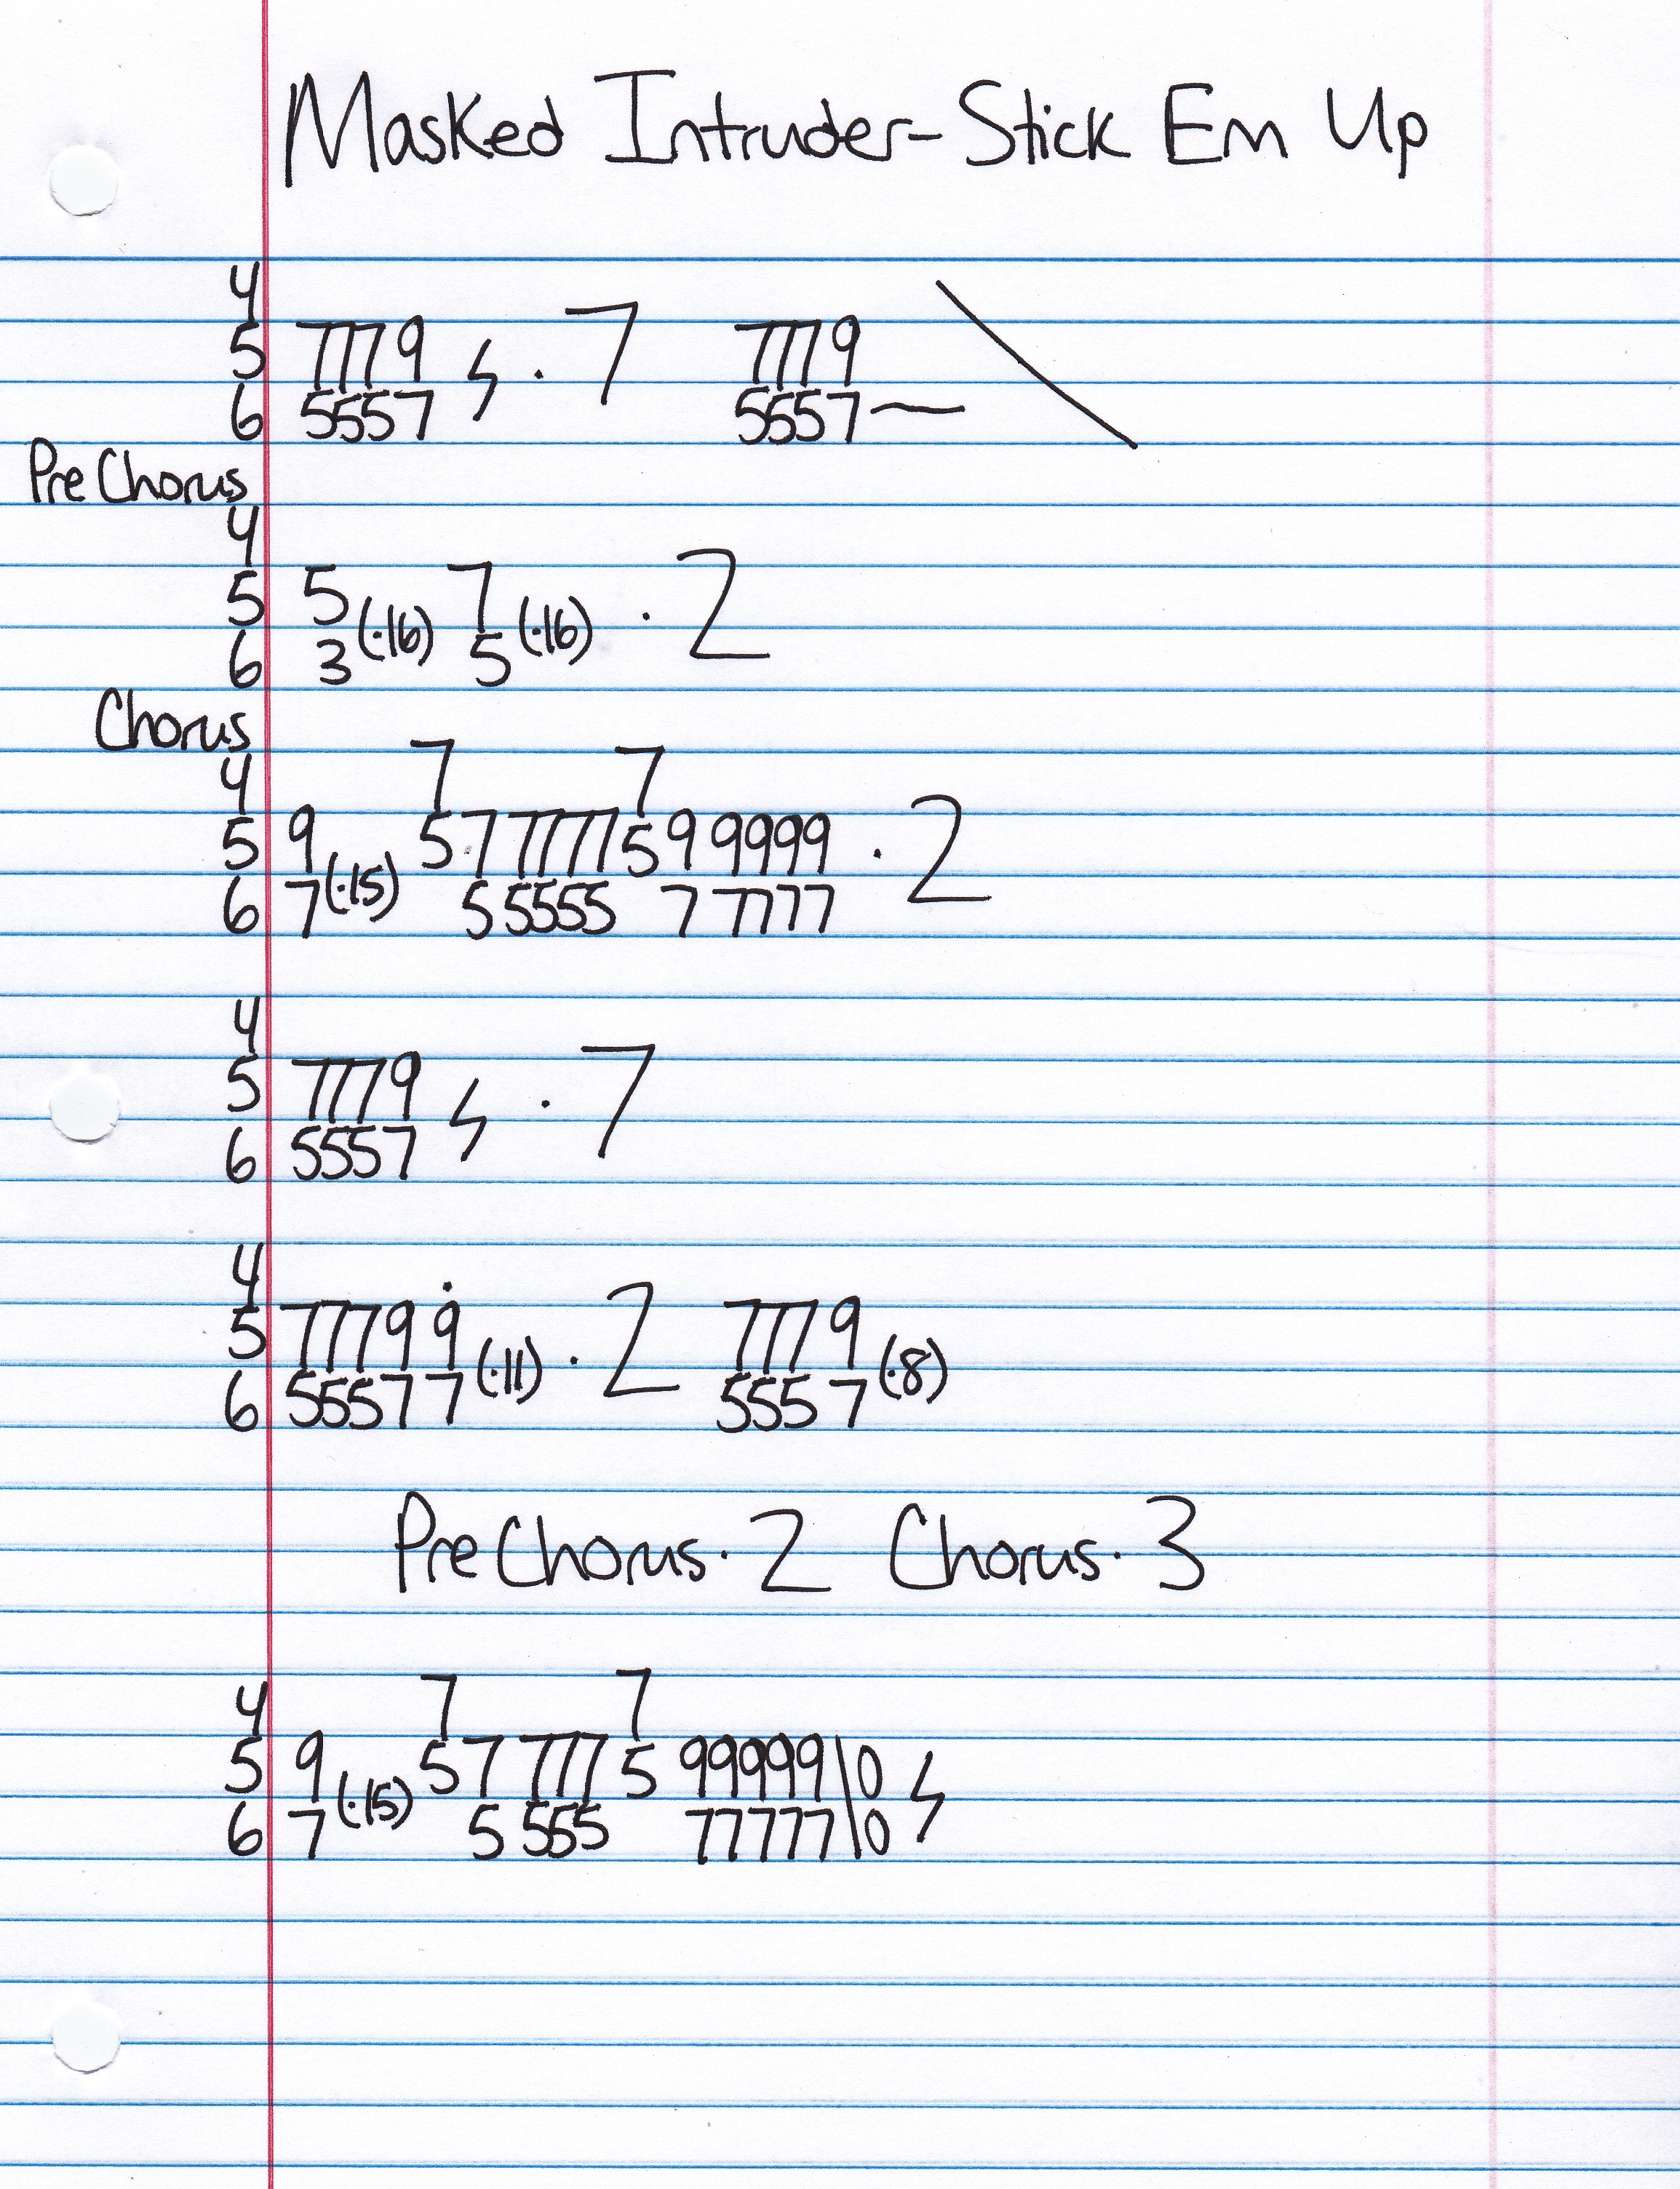 Masked Intruder-Stick Em Up
4
5 7779 ϟ · 7 7779
6 5557 5557—
Pre Chorus
4
5 5 (·16) 7 (·16) · 2
6 3 5
Chorus
4 7 7
5 9 (·15) 57 7777 59 9999 · 2
6 7 5 5555 7 7777
4
5 7779 ϟ · 7
6 5557
4
5 7779 9 (·11) · 2 7779 (·8)
6 5557 7 5557
Pre Chorus · 2 Chorus · 3
4 7 7
5 9 (·15) 57 777 5 99999\0 ϟ
6 7 5 555 77777\0